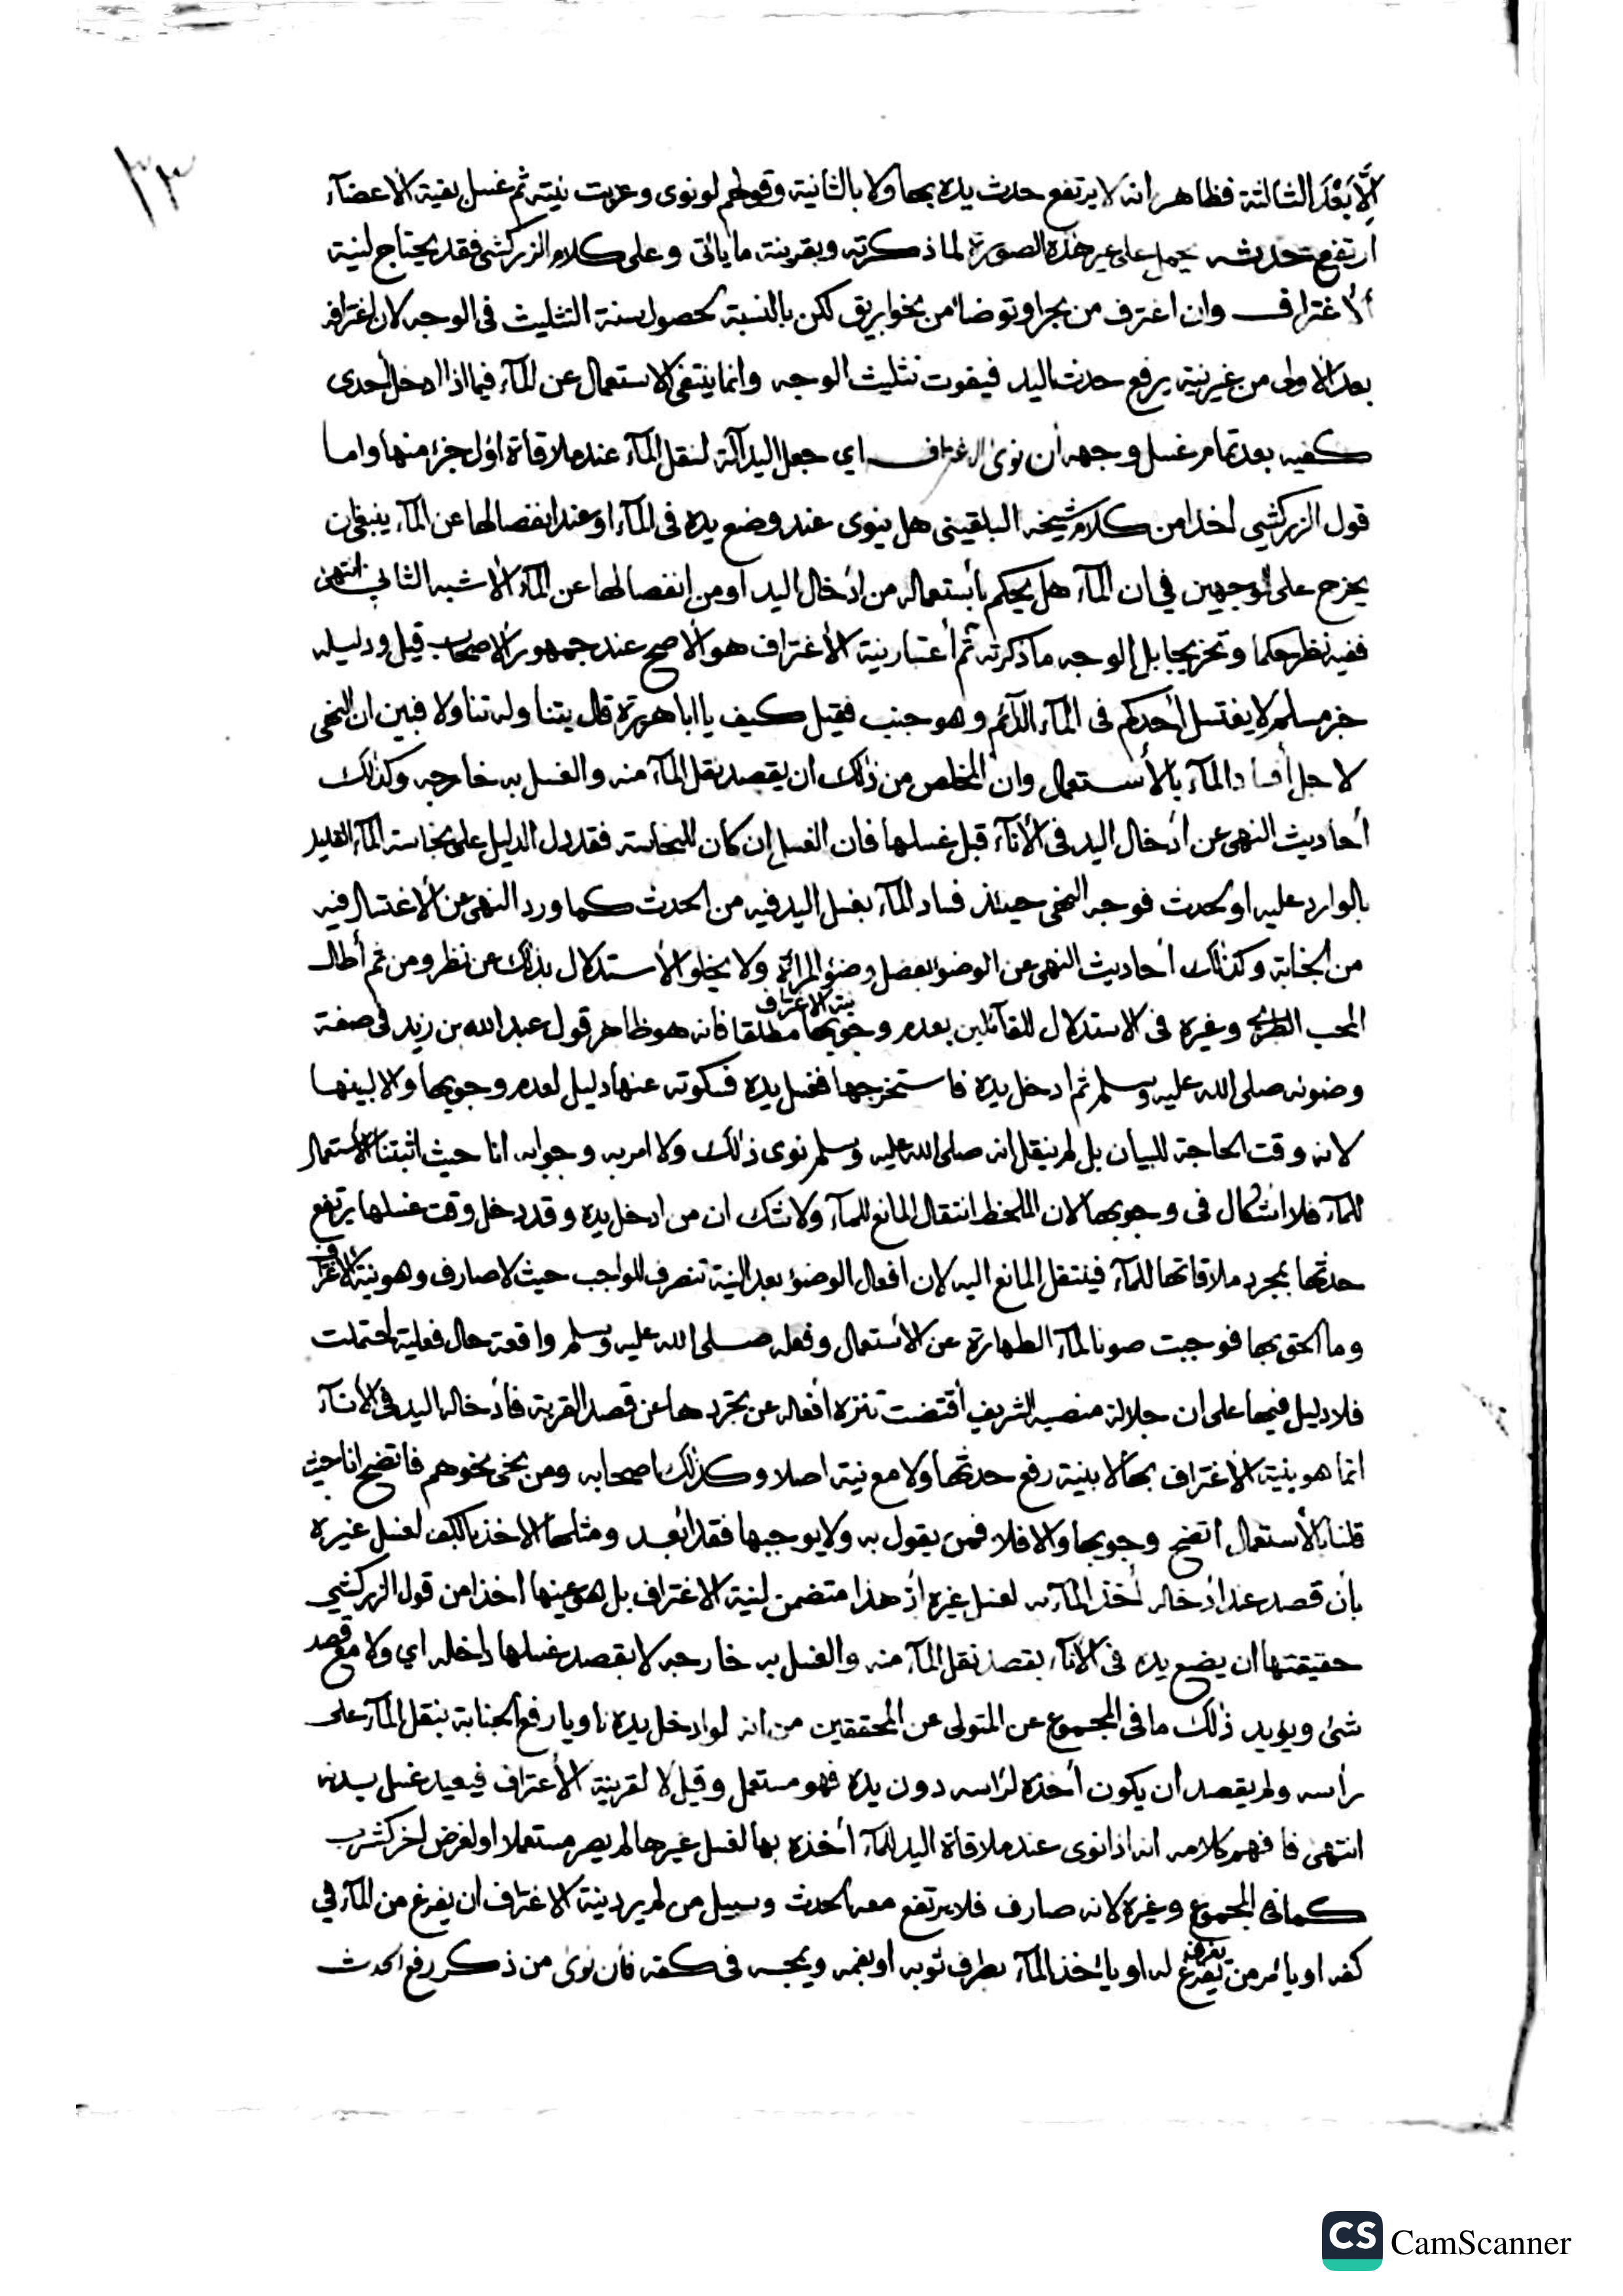 ٣٣
إلَّا بَعْدَ الثالثة فظاهر انه لا يرتفع حدث يده بها ولا بالثانية وقولهم لو نوى وعزبت نيته ثم غسل بقية الاعضآء
أرتفع حدثه يحمل على غير هذه الصورة لما ذكرته وبقرينة ما يأتى وعلى كلام الزركشى فقد يحتاج لنية
ألاغتراف وان اغترف من بحر او توضأ من نحو ابريق لكن بالنسبة لحصول سنة التثليث فى الوجه لان اغترافه
بعد الاولى من غير نية يرفع حدث اليد فيفوت تثليث الوجه وانما ينتفى الاستعمال عن المآء فيما اذا ادخل احدى
كفيه بعد تمام غسل وجهه أن نوى الاغتراف اي جعل اليد آلة لنقل المآء عند ملاقاة اول جزء منها واما
قول الزركشي اخذا من كلام شيخه البلقينى هل ينوى عند وضع يده فى المآء او عند انفصالها عن المآء ينبغى ان
يخرج على الوجهين في ان المآء هل يحكم بأستعماله من ادخال اليد او من انفصالها عن المآء الأشبه الثاني انتهى
ففيه نظر حكما وتخريجا بل الوجه ما ذكرته ثم أعتبار نية الأغتراف هو الأصح عند جمهور الاصحاب قيل ودليله
خبر مسلم لا يغتسل أحدكم فى المآء الدآئم وهو جنب فقيل كيف يا ابا هريرة قال يتناوله تناولا فبين ان النهى
لاجل أفساد المآء بالأستعمال وان المخلص من ذلك ان يقصد نقل المآء منه والغسل به خارجه وكذلك
أحاديث النهى عن أدخال اليد فى الأنآء قبل غسلها فان الغسل إن كان للنجاسة فقد دل الدليل على نجاسة المآء القليل
بالوارد عليه او لحدث فوجه النهى حينئذ فساد المآء بغسل اليد فيه من الحدث كما ورد النهى عن الاغتسال فيه
من الجنابة وكذلك أحاديث النهى عن الوضوء بفضل وضوء المرأة ولا يخلو الأستدلال بذلك عن نظر ومن ثم أطال
المحب الطبرى وغيره فى الاستدلال للقآئلين بعدم وجوبها نية الاغتراف مطلقا فانه هو ظاهر قول عبد الله بن زيد فى صفة
وضوئه صلى الله عليه وسلم ثم ادخل يده فاستخرجها فغسل يده فسكوته عنها دليل لعدم وجوبها والا لبينها
لانه وقت الحاجة للبيان بل لم ينقل انه صلى الله عليه وسلم نوى ذلك ولا امر به وجوابه انا حيث اثبتنا الأستعمال
للمآء فلا اشكال فى وجوبها لان الملحظ انتقال المانع للمآء ولا شك ان من ادخل يده وقد دخل وقت غسلها يرتفع
حدثها بمجرد ملاقاتها للمآء فينتقل المانع اليه لان افعال الوضوء بعد النية تنصرف للواجب حيث لا صارف وهو نية الاغتراف
وما الحق بها فوجبت صونا لمآء الطهارة عن الاستعمال وفعله صلى الله عليه وسلم واقعة حال فعلية احتملت
فلا دليل فيها على ان جلالة منصبه الشريف أقتضت تنزه أفعاله عن تجردها عن قصد القربة فأدخاله اليد فى الأنآء
انما هو بنية الاغتراف بها لا بنية رفع حدثها ولا مع نية اصلا وكذلك اصحابه ومن نحى نحوهم فاتضح انا حيث
قلنا بالأستعمال اتضح وجوبها والا فلا فمن يقول به ولا يوجبها فقد ابعد ومثلها الاخذ بالكف لغسل غيره
بأن قصد عند ادخاله أخذ المآء به لغسل غيره أذ هذا متضمن لنية الاغتراف بل هو عينها اخذا من قول الزركشي
حقيقتها ان يضع يده فى الانآء بقصد نقل المآء منه والغسل به خارجه لا بقصد غسلها داخله اي ولا مع قصد
شئ ويؤيد ذلك ما فى المجموع عن المتولى عن المحققين من انه لو ادخل يده ناويا رفع الجنابة بنقل المآء على
رأسه ولم يقصد ان يكون أخذه لرأسه دون يده فهو مستعمل وقيل لا لقرينة الأغتراف فيعيد غسل يديه
انتهى فافهم كلامه انه اذا نوى عند ملاقاة اليد للمآء أخذه بها لغسل غيرها لم يصر مستعملا او لغرض اخر كشرب
كما فى المجموع وغيره لانه صارف فلا يرتفع معه الحدث وسبيل من لم يرد نية الاغتراف ان يفرغ من المآء في
كفه او يأمر من يفرغ له او يأخذ المآء بطرف ثوبه او بفمه ويمجه فى كفه فأن نوى من ذكر رفع الحدث
CS CamScanner